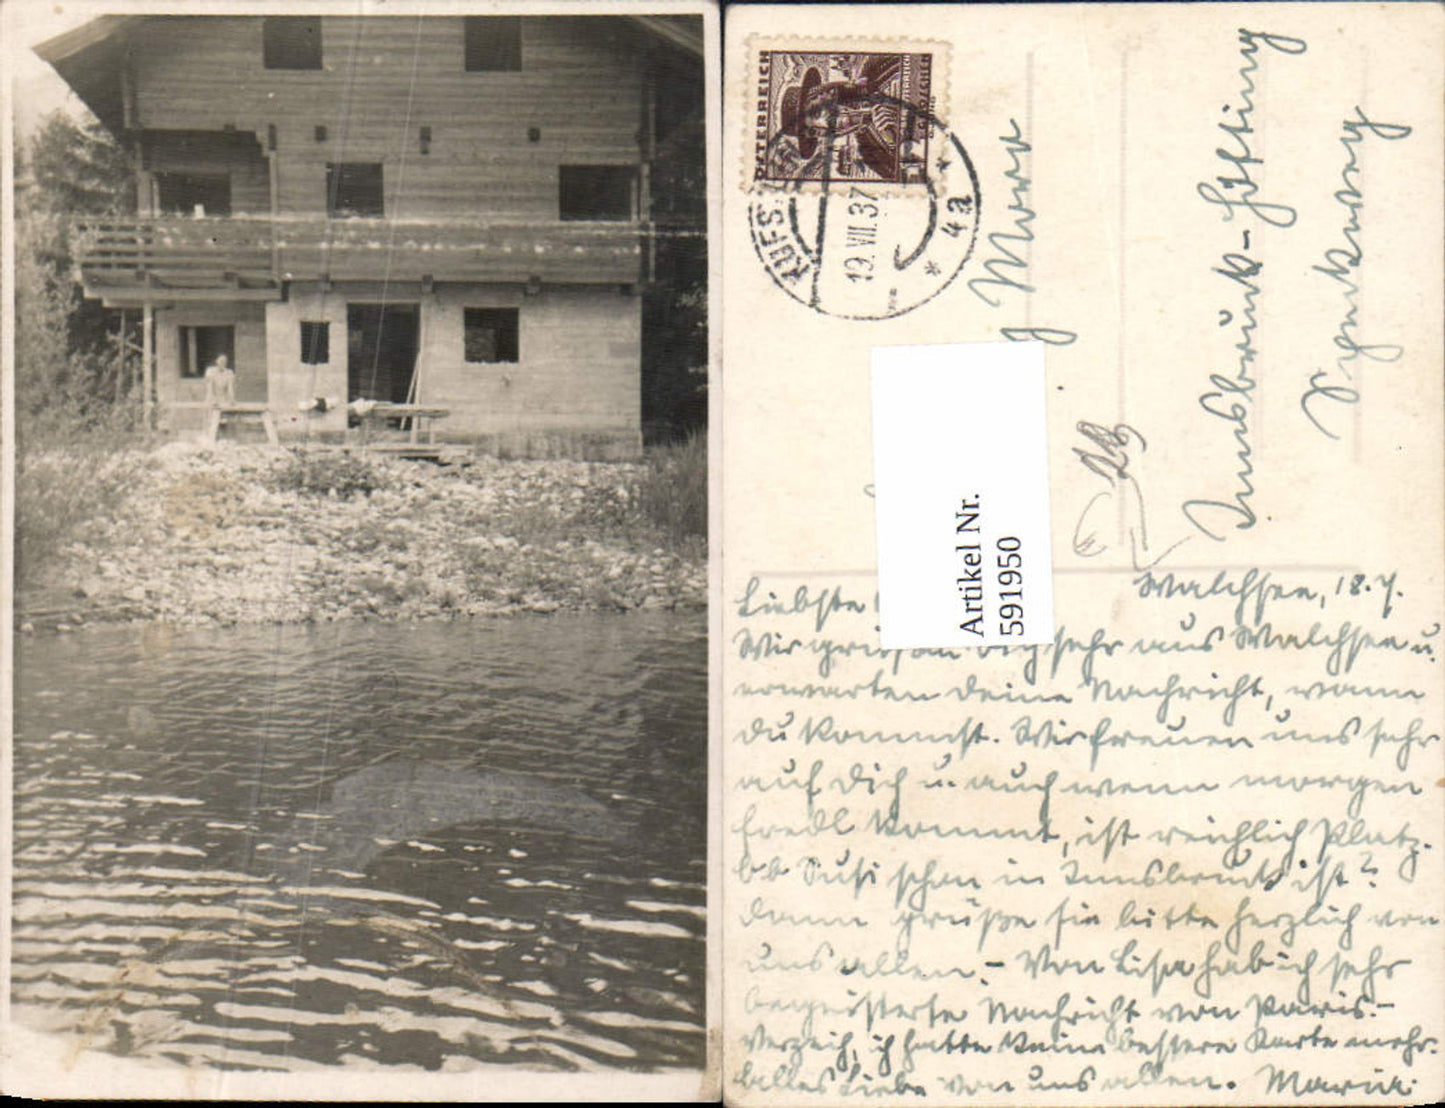 ÖSTERREICH
KUFSTEIN
19. VII. 37
* 4a *
Innsbruck-Hötting
Artikel Nr.
591950
Walchsee, 18.7.
Liebste
Wir grüssen Dich sehr aus Walchsee u.
erwarten Deine Nachricht, wann
Du kommst. Wir freuen uns sehr
auf Dich u. auch wenn morgen
Friedl kommt, ist reichlich Platz.
Ob Susi schon in Innsbruck ist?
Dann grüße sie bitte herzlich von
uns allen. - Von Lisa hab ich sehr
begeisterte Nachricht von Paris. -
Verzeih, ich hatte keine bessere Karte mehr.
Alles Liebe von uns allen. Maria.